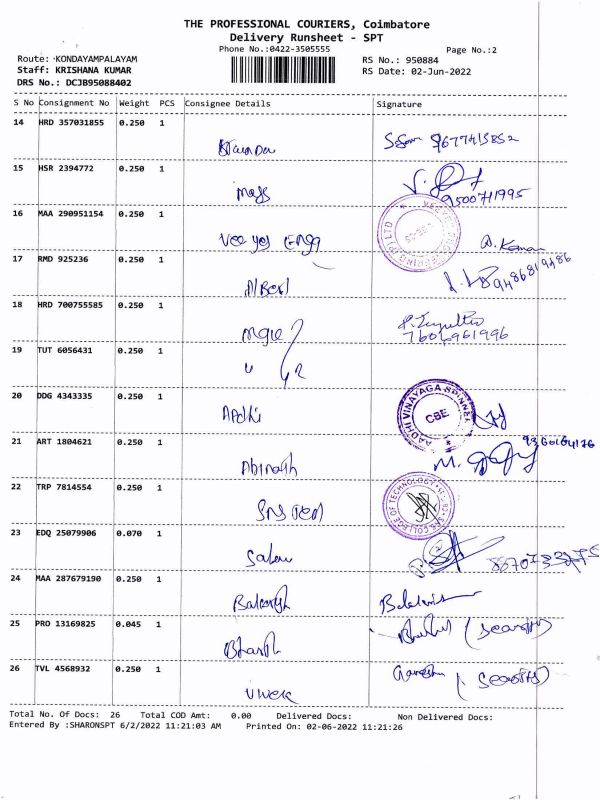 THE PROFESSIONAL COURIERS, Coimbatore
Delivery Runsheet - SPT
Phone No.:0422-3505555
Page No.:2
Route: KONDAYAMPALAYAM
RS No.: 950884
Staff: KRISHANA KUMAR
RS Date: 02-Jun-2022
DRS No.: DCJB95088402
S No Consignment No Weight PCS Consignee Details Signature
14 HRD 357031855 0.250 1
9677413852
15 HSR 2394772 0.250 1
9500711995
16 MAA 290951154 0.250 1
Vee yes Engg
17 RMD 925236 0.250 1
Albert 9486819486
18 HRD 700755585 0.250 1
19 TUT 6056431 0.250 1
20 DDG 4343335 0.250 1
Aadhi
AADHI VINAYAGA SPINNE
CBE
21 ART 1804621 0.250 1
Abinash M.
22 TRP 7814554 0.250 1
SNS
COLLEGE OF TECHNOLOGY
23 EDQ 25079906 0.070 1
24 MAA 287679190 0.250 1
25 PRO 13169825 0.045 1
Bharath
26 TVL 4568932 0.250 1
Vivek
Total No. Of Docs: 26 Total COD Amt: 0.00 Delivered Docs: Non Delivered Docs:
Entered By :SHARONSPT 6/2/2022 11:21:03 AM Printed On: 02-06-2022 11:21:26